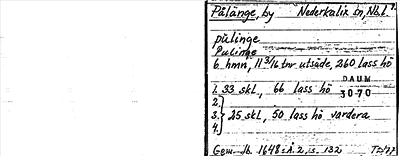 Pålänge, by Nederkalix sn, Nbl.
pålinge
Pulinge
6 hmn, 11 3/16 tnr utsäde, 260 lass hö
DAUM
1. 33 skl., 66 lass hö 3070
2.
3. 25 skl., 50 lass hö vardera
4.
Gem. Jb. 1648: A. 2, s. 132